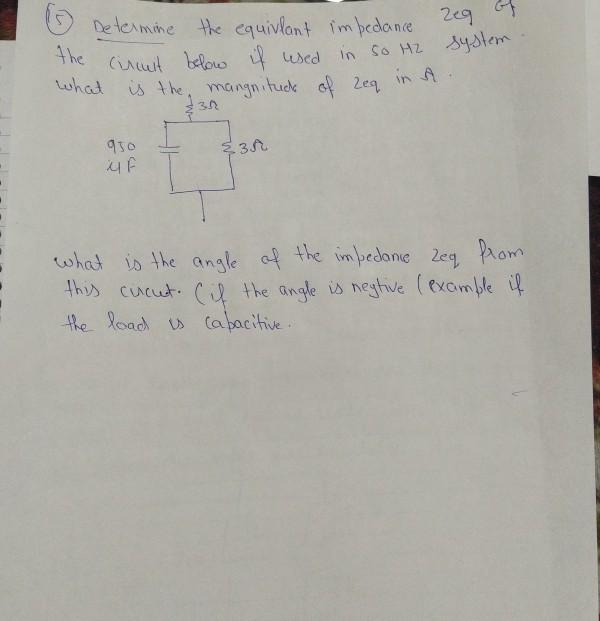 5 Determine the equivlant impedance Zeq of
the circuit below if used in 50 HZ system.
what is the mangnitude of Zeq in Ω.
3Ω
950
μF
3Ω
what is the angle of the impedance Zeq from
this circuit. (if the angle is negtive (example if
the load is capacitive.